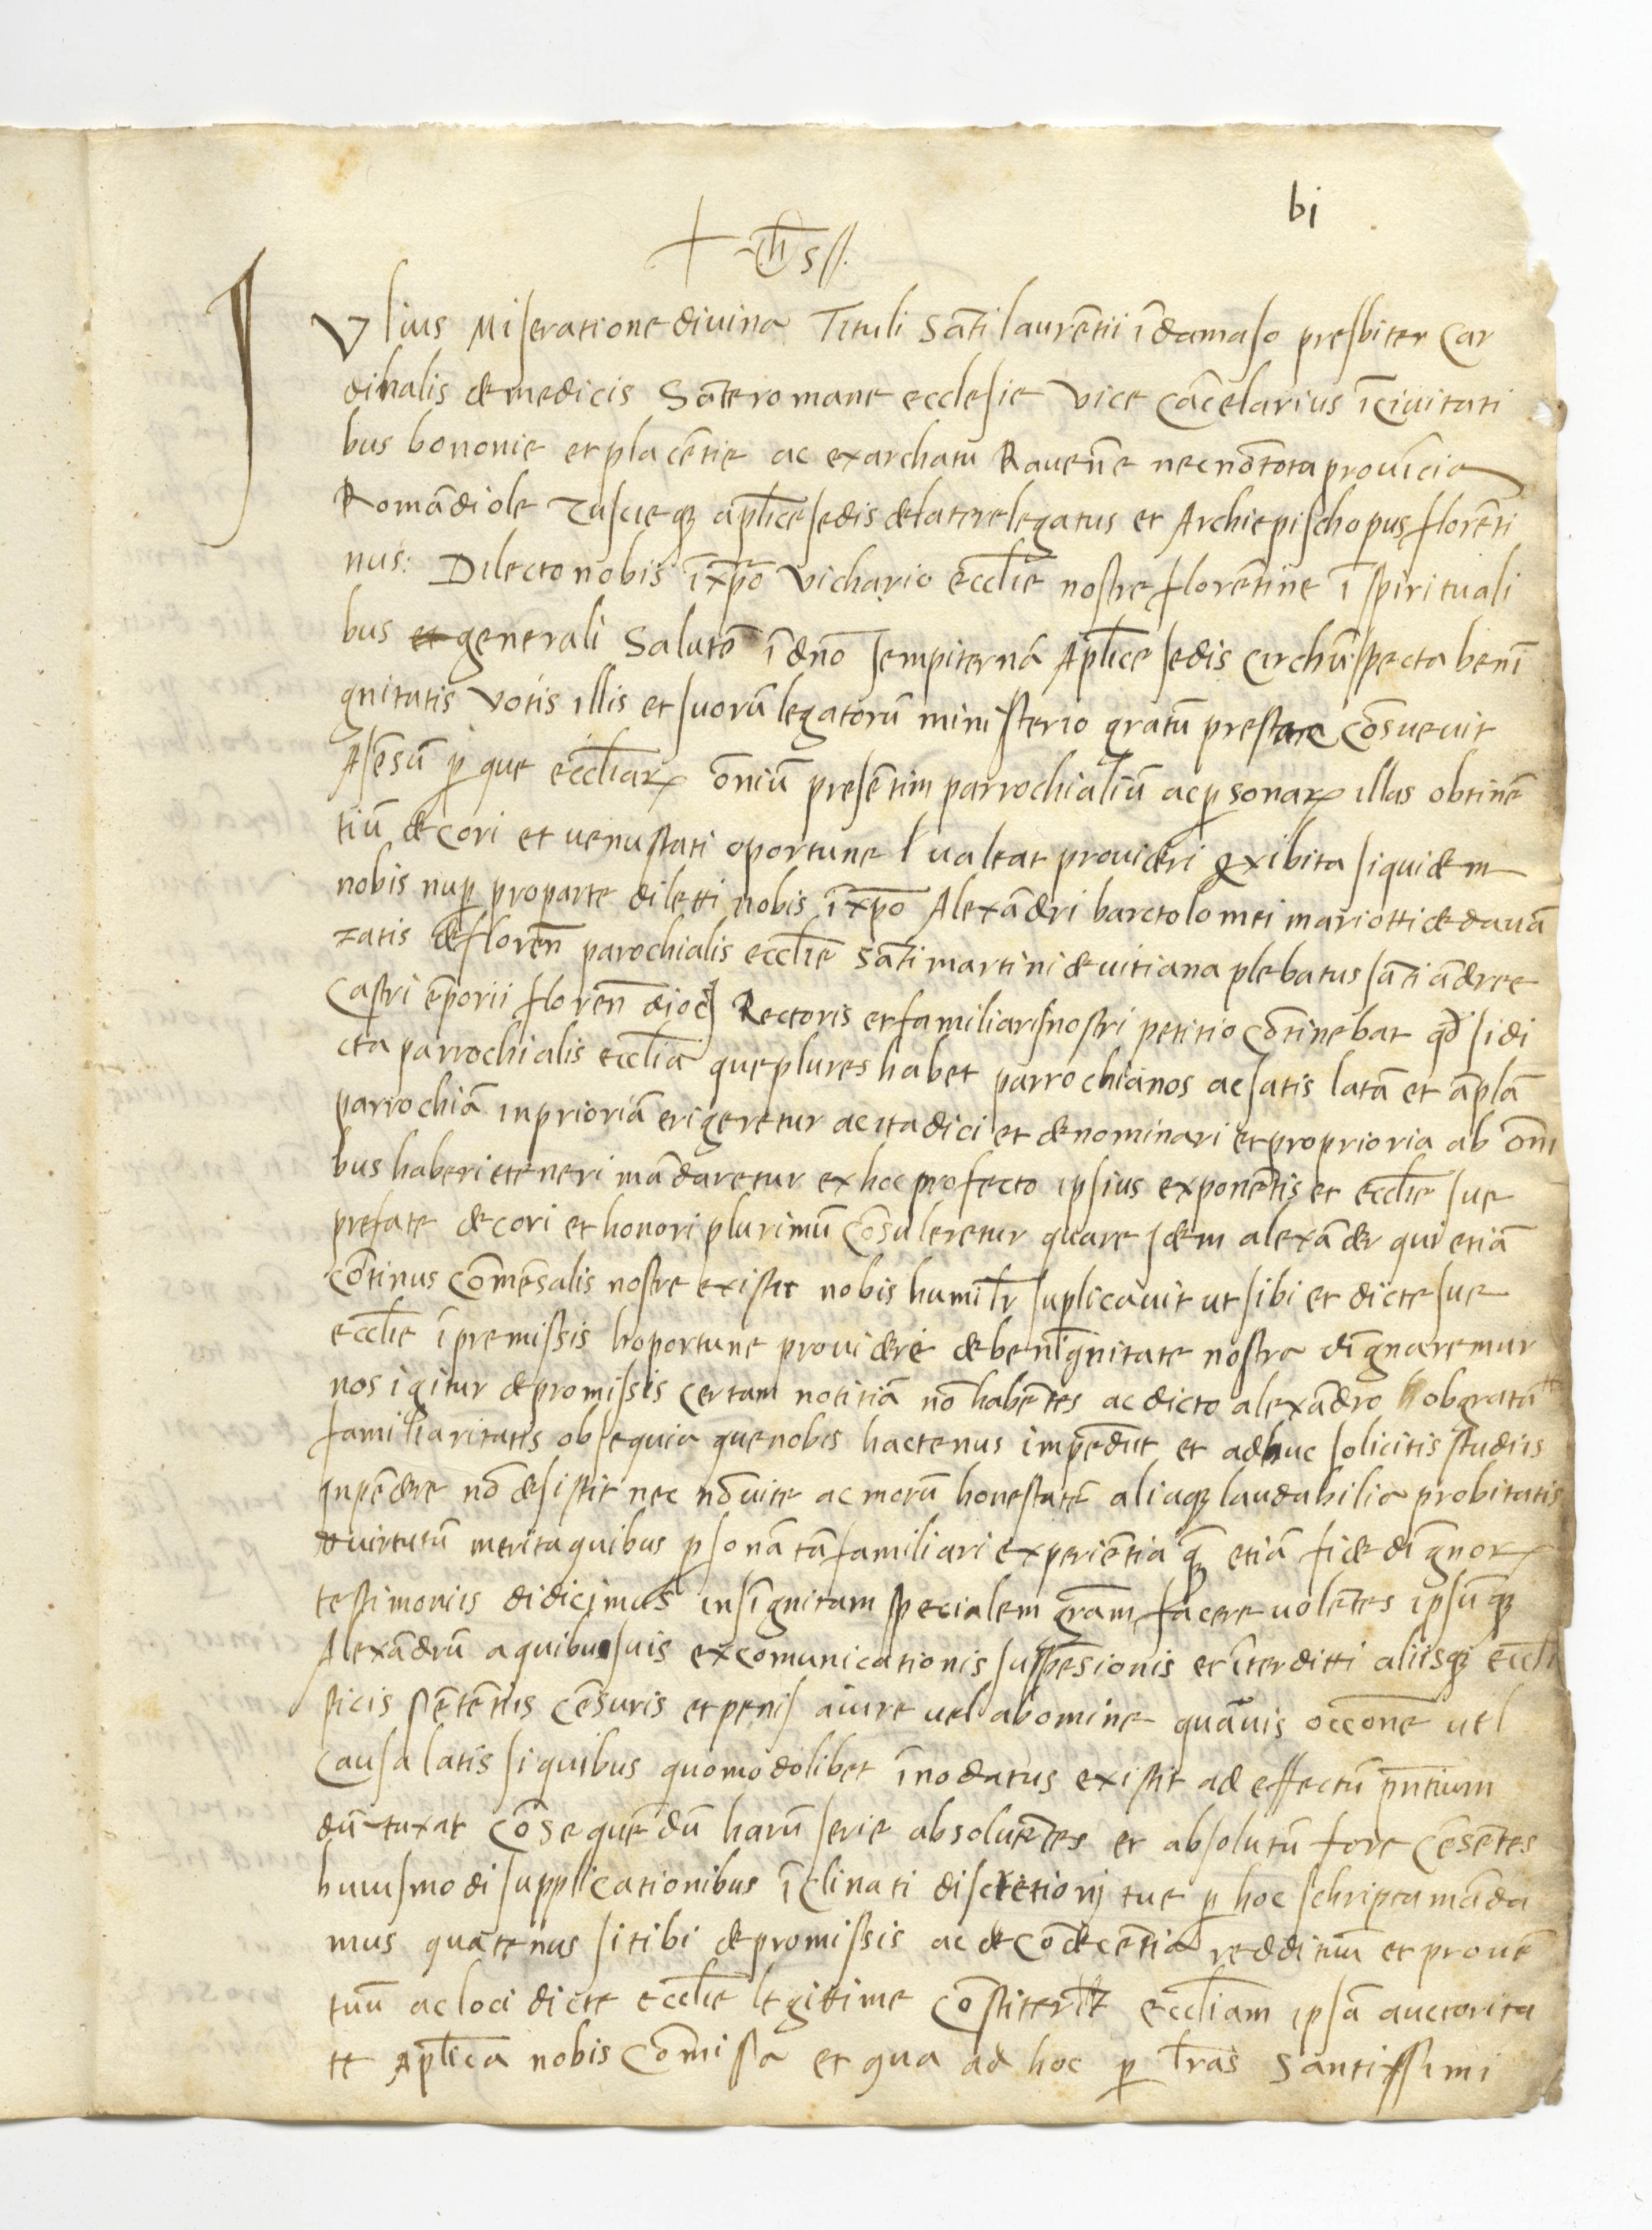 bi
+ yhs //.
IVlius Miseratione diuina Tituli Sāti laurētii ī damaso presbiter Car
dinalis de medicis Sāte romane ecclesie Vice Cācelarius ī ciuitati
bus bononie et placētie ac exarchatu Rauēne nec nō tota prouīcia
Romādiole Tuscieqꝫ aplīce sedis de latere legatus et Archiepischopus florēti
nus: Dilecto nobis ī xp̄o Vichario ecclīe nostre florētine ī spirituali
bus et generali Salutē ī dn̄o sempiternā Aplīce sedis Circhūspecta benī
gnitatis Votis illis et suorū legatorū ministerio gratū prestare Cōsueuit
Asēsū ꝑ que eccliaꝝ ōniū presētim parrochialiū ac ꝑsonaꝝ illas obtinē
tiū decori et uenustati oportune l ualeat prouideri exibita siquidem
nobis nuꝑ pro parte diletti nobis ī xp̄o Alexādri barctolomei mariotti de dauā
zatis de florēn parochialis ecclīe Sāti martini de uitiana plebatus sāti ādree
Castri ēporii florēn dioc̄ Rectoris et familiaris nostri petitio Cōtinebat qd̄ si di
cta parrochialis ecclīa que plures habet parrochianos ac satis latā et āplā
parrochiā in prioriā erigeretur ac ita dici et denominari et pro prioria ab ōni
bus haberi et teneri mādaretur ex hoc profecto ipsius exponētis et ecclīe sue
prefate decori et honori plurimū Cōsuleretur quare idem alexāder qui etiā
Cōtinus Cōmēsalis nostre existit nobis humilr̄ suplicauit ut sibi et dicte sue
ecclīe ī premissis hoportune prouidere de benīgnitate nostra dīgnaremur
nos igitur de promissis certam notitiā nō habētes ac dicto alexādro ob grata
familiaritatis obsequia que nobis hactenus impēdit et adhuc solicitis studiis
inpēdere nō desistit nec nō uite ac morū honestatē aliaqꝫ laudabilia probitatis
uirtutū merita quibus ꝑsonā tā familiari experiētia qꝫ etiā fide dīgnoꝝ
testimoniis didicimus insīgnitam specialem grām facere uolētes ipsūqꝫ
Alexādrū a quibusuis excomunicationis suspēsionis et īterditti aliisqꝫ eccli
sticis sētētiis Cēsuris et penis a iure uel ab omine quāuis occōne uel
Causa latis si quibus quomodolibet īnodatus existit ad effectū pn̄tium
dū taxat Cōsequēdū harū serie absoluētes et absolutū fore Cēsētes
huiusmodi supplicationibus īclinati discretioni tue ꝑ hoc schripta māda
mus quatenus si tibi de promissis ac de Cōdecētia reddituū et prouē
tuū ac loci dicte ecclīe legittime Cōstiterit eccliam ipsā auctorita
te Aplīca nobis Cōmissa et qua ad hoc ꝑ lr̄as Santissimi